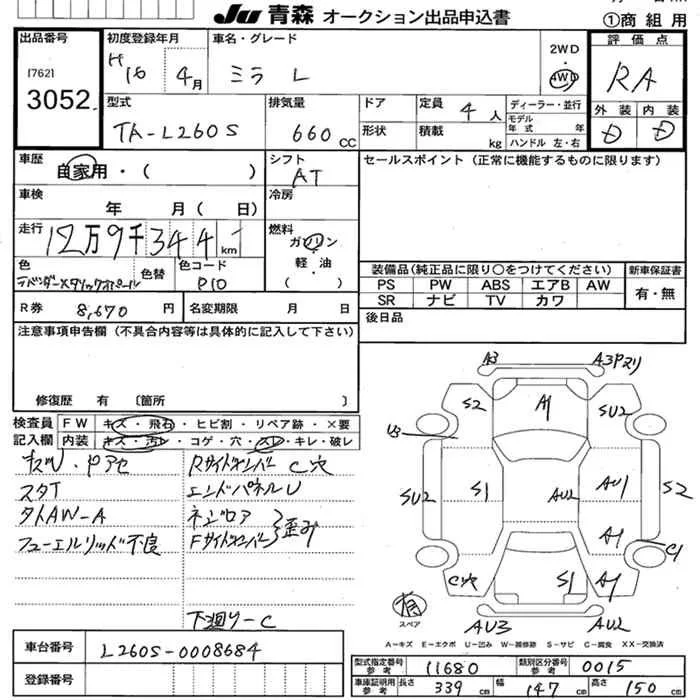 JU 青森 オークション出品申込書
①商組用
出品番号
[762]
3052
初度登録年月
H16 4月
車名・グレード
ミラ L
2WD
4WD
評価点
RA
外装 内装
D D
型式
TA-L260S
排気量
660 CC
ドア
形状
定員 4人
積載 kg
ディーラー・並行
モデル年式 年式
ハンドル 左・右
車歴
自家用・( )
シフト
AT
セールスポイント(正常に機能するものに限ります)
車検
年 月( 日)
冷房
走行
12万9千344 km
燃料
ガソリン
軽油
( ・ )
色
色替
色コード
P10
装備品(純正品に限り○をつけてください)
新車保証書
PS PW ABS エアB AW
SR ナビ TV カワ
有・無
R券 8,670 円
名変期限 月 日
後日品
注意事項申告欄(不具合内容等は具体的に記入して下さい)
修復歴 有 〔箇所 〕
検査員記入欄
FW キズ・飛石・ヒビ割・リペア跡・×要
内装 キズ・汚レ・コゲ・穴・スレ・キレ・破レ
キズU・Pアセ
スタT
タイAW-A
フューエルリッド不良
RサイドメンバーC穴
エンドパネルU
ネジロア
Fサイドメンバー
歪み
下廻りーC
A3 A3Pスリ
S2 A1 SU2
U3
SU2 S1 AU2 AU1 S2
A1 C1
C穴 S1 A1
AU3 AU2
有
スペア
A-キズ E-エクボ U-凹み W-補修跡 S-サビ C-腐食 XX-交換済
車台番号 L260S-0008684
登録番号
型式指定番号参考 11680
類別区分番号参考 0015
車庫証明用参考 長さ 339 cm 幅 147 cm 高さ 150 cm